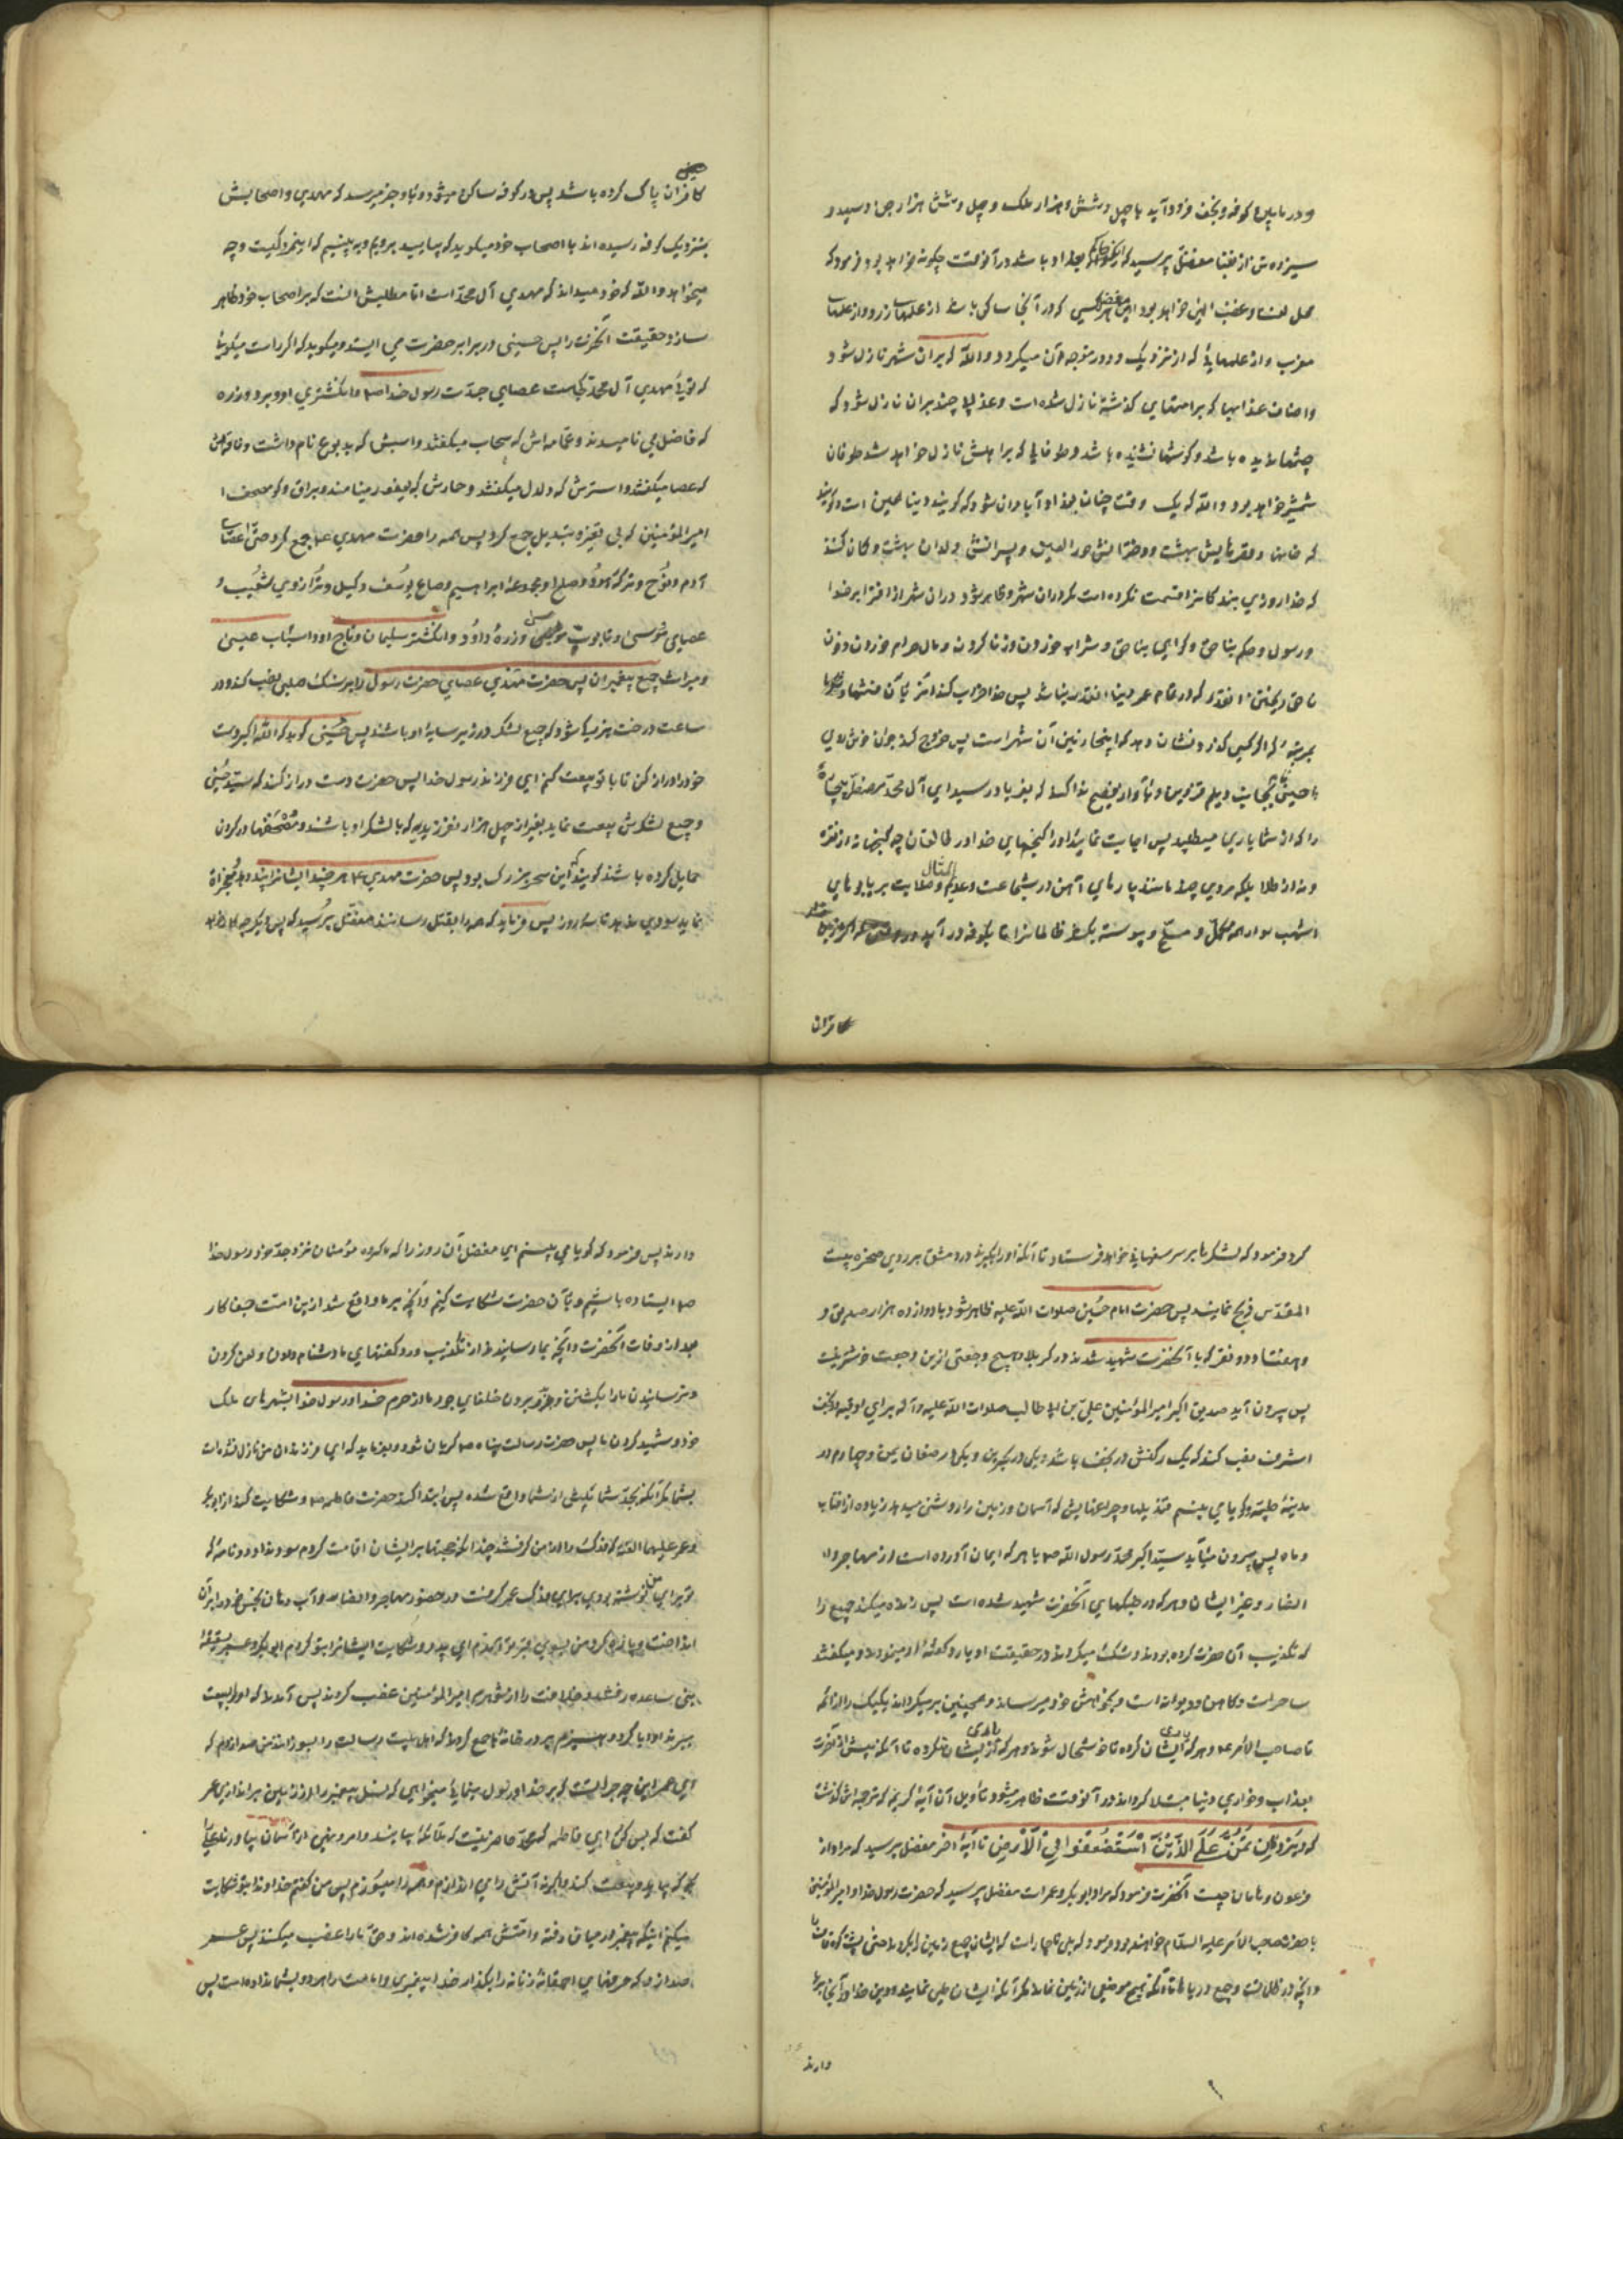 و در مابین کوفه و نجف فرود آید با چهل و شش هزار ملک و چهل و شش هزار جن و سیصد و
سیزده تن از نقبا مفضل پرسید که بغداد باشد در آنوقت چگونه خواهد بود فرمود که
محل لعنت و غضب الهی خواهد بود کسی که در آنجا ساکن باشد از علمهای زرد و از علمهای
مغرب و از علمهایی که از نزدیک و دور متوجه آن میگردد والله که بر آن شهر نازل شود
اصناف عذابها که بر امتهای گذشته نازل شده است و عذابی چند بر آن نازل شود که
چشمها ندیده باشد و گوشها نشنیده باشد و طوفانی که بر اهلش نازل خواهد شد طوفان
شمشیر خواهد بود والله که یک وقت چنان بغداد آبادان شود که گویند دنیا همین است و گویند
که خانها و قصرهایش بهشت و دخترانش حور العین و پسرانش ولدان بهشت و گمان کنند
که خدا روزی بندگانرا قسمت نکرده است مگر در آن شهر و ظاهر شود در آن شهر از افترا بر خدا
و رسول و حکم بناحق و گواهی بناحق و شراب خوردن و زنا کردن و مال حرام خوردن و خون
ناحق ریختن آنقدر که در تمام دنیا آنقدر نباشد پس خدا خراب کند آنرا بآن فتنها
بمرتبه که اگر کسی گذرد نشان دهد که اینجا زمین آن شهر است پس خروج کند جوان خوش روی
حسنی بجانب دیلم و قزوین و بآواز فصیح ندا کند که بفریاد رسید ای آل محمد مضطر بیچاره
را که از شما یاری میطلبد پس اجابت نمایند او را گنجهای خدا در طالقان چه گنجها نه از نقره
و نه از طلا بلکه مردی چند مانند پارهای آهن در شجاعت و صلابت بر یابوهای
اشهب سوار همه مکمل و مسلح و پیوسته بکشد ظالمانرا تا بکوفه در آید
کافران
کافران پاک کرده باشد پس در کوفه ساکن میشود و باو خبر میرسد که مهدی و اصحابش
بنزدیک کوفه رسیده اند با اصحاب خود میگوید که بیایید برویم و ببینیم که این مرد کیست و چه
میخواهد والله که خود میداند که مهدی آل محمد است اما مطلبش آنست که بر اصحاب خود ظاهر
سازد حقیقت آنحضرت را پس حسینی در برابر حضرت می ایستد و میگوید که اگر راست میگویی
که تویی مهدی آل محمد کجاست عصای جدت رسول خدا ص و انگشتری او و برد و زره
که فاضل می نامیدند و عمامه اش که سحاب میگفتند و اسبش که یربوع نام داشت و ناقه اش
که عضبا میگفتند و استرش که دلدل میگفتند و حمارش که یعفور مینامند و براق و کو مصحف
امیرالمؤمنین که بی تغیر و تبدیل جمع کرد پس همه را حضرت مهدی ع جمع کرد حتی عصای
آدم و نوح و ترکه هود و صالح و مجموعه ابراهیم و صاع یوسف و کیل و ترازوی شعیب و
عصای موسی و تابوت موسی و زره داود و انگشتر سلیمان و تاج او و اسباب عیسی
و میراث جمیع پیغمبران پس حضرت مهدی عصای حضرت رسول را بر سنگ صلبی نصب کند در
ساعت درخت بزرگ شود که جمیع لشکر در زیر سایه او باشند پس حسینی گوید که الله اکبر دست
خود را دراز کن تا با تو بیعت کنم ای فرزند رسول خدا پس حضرت دست دراز کند که سید حسنی
و جمیع لشکرش بیعت نماید بغیر از چهل هزار نفر زیدیه که با لشکر او باشند و مصحفها در گردن
حمایل کرده باشند گویند که این سحر بزرگ بود پس حضرت مهدی ع هر چند ایشانرا پند دهد و معجزات
نماید سودی ندهد تا سه روز پس فرماید که همه را بقتل رسانند مفضل پرسید که پس دیگر چه
کرد فرمود که لشکرها بر سر سفیانی خواهد فرستاد تا آنکه او را بگیرند در دمشق بر روی صخره بیت
المقدس ذبح نمایند پس حضرت امام حسین صلوات الله علیه ظاهر شود با دوازده هزار صدیق و
هفتاد و دو نفر که با آنحضرت شهید شدند در کربلا و هیچ رجعتی از این رجعت خوشتر نیست
پس بیرون آید صدیق اکبر امیرالمؤمنین علی بن ابی طالب صلوات الله علیه و آله برای او قبه در نجف
اشرف نصب کنند که یک رکنش در نجف باشد و یکی در بحرین و یکی در صنعای یمن و چهارم در
مدینه طیبه و گویا می بینم قندیلها و چراغهایش که آسمان و زمین را روشنی میدهد زیاده از آفتاب
و ماه پس بیرون میآید سید اکبر محمد رسول الله ص با هر که ایمان آورده است از مهاجر و
انصار و غیر ایشان و هر که در جنگهای آنحضرت شهید شده است پس زنده میکند جمیع را
که تکذیب آن حضرت کرده بودند و شک میکردند در حقیقت او یا رد گفته او مینمودند و میگفتند
ساحر است و کاهن و دیوانه است و بخواهش خود میرساند
تا صاحب الامر ع و هر که یاری ایشان کرده تا خوشحال شوند و هر که یاری ایشان نکرده تا آنکه پیش از آخرت
بعذاب و خواری دنیا مبتلا کردند و در آنوقت ظاهر میشود تأویل آن آیه کریمه که ترجمه اش گذشت
که وَنُرِیدُ اَن نَمُنَّ عَلَی الَّذِینَ اسْتُضْعِفُوا فِی الْاَرْضِ تا آیه آخر مفضل پرسید که مراد از
فرعون و هامان چیست آنحضرت فرمود که مراد ابو بکر و عمر است مفضل پرسید که حضرت رسول خدا و امیرالمؤمنین
با حضرت صاحب الامر علیه السلام خواهند بود فرمود که بلی ناچار است که ایشان جمیع زمین را بگردند حتی پشت کوه قاف
و آنچه در ظلمات و جمیع دریاها تا آنکه هیچ موضعی از زمین نماند مگر آنکه ایشان طی نمایند و دین خدا را آنجا برپا
دارند
دارند پس فرمود که گویا می بینم ای مفضل آن روز را که ما گروه مؤمنان نزد جد خود رسول خدا
ص ایستاده باشیم و بآن حضرت شکایت کنیم آنچه بر ما واقع شد از این امت جفا کار
بعد از وفات آنحضرت و آنچه بما رسانیدند از تکذیب و رد گفتهای ما و دشنام دادن و لعن کردن
و ترسانیدن ما را بکشتن و بدر بردن خلفای جور ما را از حرم خدا و رسول خدا بشهرهای ملک
خود و شهید کردن ما پس حضرت رسالت پناه ص گریان شود و بفرماید که ای فرزندان من نازل نشده است
بشما مگر آنکه بجد شما پیش از شما واقع شده پس ابتدا کند حضرت فاطمه و شکایت کند از ابو بکر
و عمر علیهما اللعنه که فدک را از من گرفتند و چندانکه حجتها بر ایشان اقامت کردم سود نداد و نامه که
تو برای من نوشته بودی برای فدک عمر گرفت در حضور مهاجر و انصار و آب دهان نجس خود را بر آن
انداخت و پاره کرد من بسوی قبر تو آمدم ای پدر و شکایت ایشانرا بتو کردم ابو بکر و عمر بسقیفه
بنی ساعده رفتند و خلافت را از شوهرم امیرالمؤمنین غصب کردند پس آمدند که او را به بیعت
ببرند او ابا کرد و هیزم بر در خانه ما جمع کردند که اهل بیت رسالت را بسوزانند من صدا زدم که
ای عمر این چه جرأتست که بر خدا و رسول مینمایی میخواهی که نسل پیغمبر را از زمین براندازی عمر
گفت که بس کن ای فاطمه که محمد حاضر نیست که ملائکه بیایند و امر و نهی از آسمان بیاورند علی را
بگو که بیاید و بیعت کند و اگر نه آتش را می اندازم و همه را میسوزم پس من گفتم خداوندا بتو شکایت
میکنم اینکه پیغمبر از میان رفته و امتش همه کافر شده اند و حق ما را غصب میکنند پس عمر
صدا زد که حرفهای احمقانه زنانه را بگذار خدا پیغمبری و امامت را هر دو بشما نداده است پس